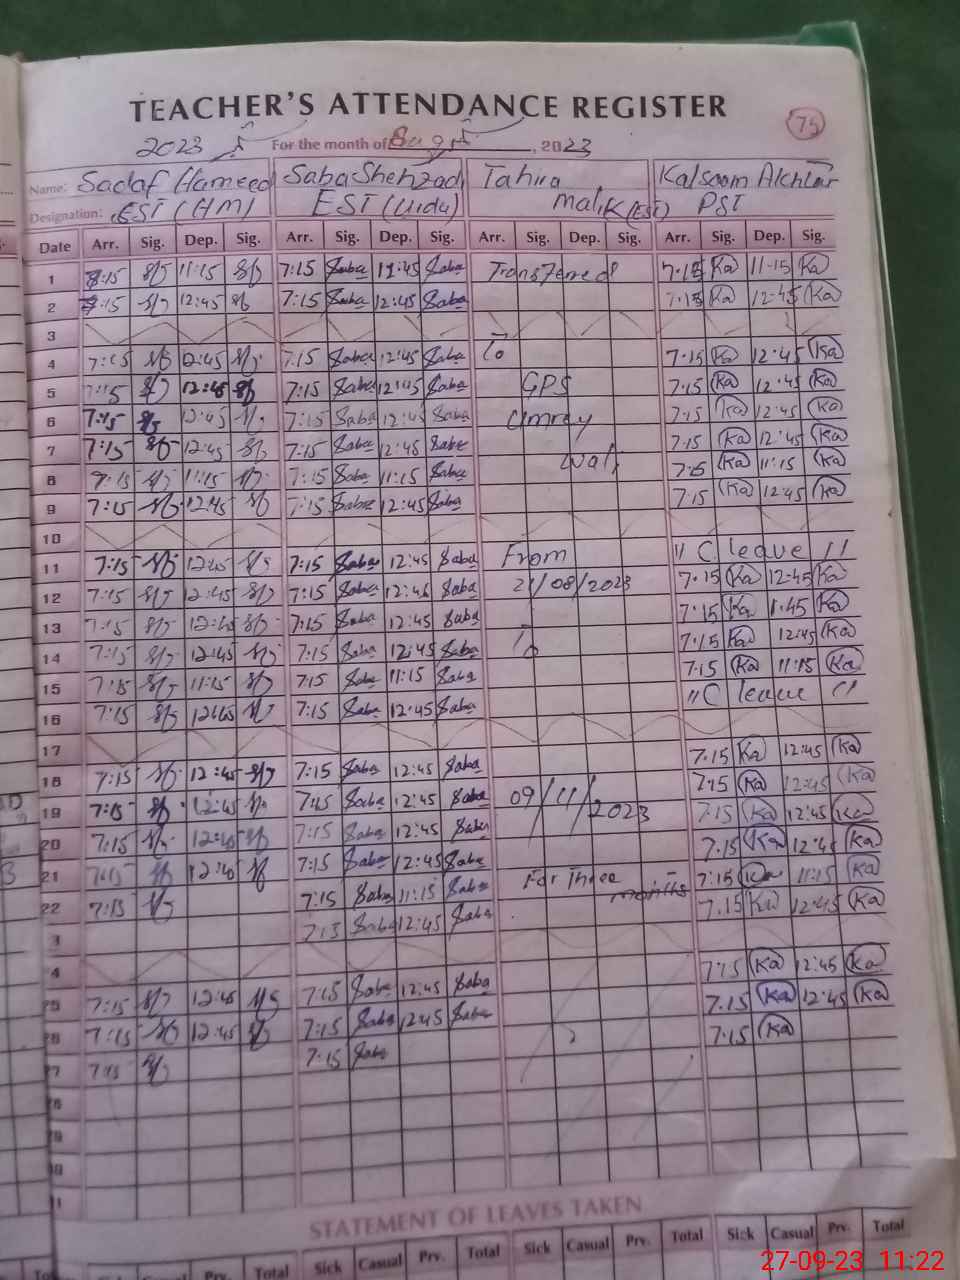 TEACHER'S ATTENDANCE REGISTER
75
2023 For the month of , 2023
Name: Sadaf Hameed Saba Shehzadi Tahira Kalsoom Akhtar
Designation: EST (HM) EST (Urdu) Malik (EST) PST
Date Arr. Sig. Dep. Sig. Arr. Sig. Dep. Sig. Arr. Sig. Dep. Sig. Arr. Sig. Dep. Sig.
1 7:15 11:15 7:15 Saba 11:45 Saba Transferred 7:15 Ka 11:15 Ka
2 7:15 12:45 7:15 Saba 12:45 Saba 7:15 Ka 12:45 Ka
3
4 7:15 12:45 7:15 Saba 12:45 Saba To 7:15 Ka 12:45 Ka
5 7:15 12:45 7:15 Saba 12:45 Saba GPS 7:15 Ka 12:45 Ka
6 7:15 12:45 7:15 Saba 12:45 Saba Umrey 7:15 Ka 12:45 Ka
7 7:15 12:45 7:15 Saba 12:45 Saba Wali 7:15 Ka 12:45 Ka
8 7:15 11:15 7:15 Saba 11:15 Saba 7:15 Ka 11:15 Ka
9 7:15 12:45 7:15 Saba 12:45 Saba 7:15 Ka 12:45 Ka
10
11 7:15 12:45 7:15 Saba 12:45 Saba From " C leave "
12 7:15 12:45 7:15 Saba 12:45 Saba 21/08/2023 7:15 Ka 12:45 Ka
13 7:15 12:45 7:15 Saba 12:45 Saba 7:15 Ka 1:45 Ka
14 7:15 12:45 7:15 Saba 12:45 Saba To 7:15 Ka 12:45 Ka
15 7:15 11:15 7:15 Saba 11:15 Saba 7:15 Ka 11:15 Ka
16 7:15 12:45 7:15 Saba 12:45 Saba " C leave "
17
18 7:15 12:45 7:15 Saba 12:45 Saba 7:15 Ka 12:45 Ka
19 7:15 12:45 7:15 Saba 12:45 Saba 09/11/2023 7:15 Ka 12:45 Ka
20 7:15 12:45 7:15 Saba 12:45 Saba 7:15 Ka 12:45 Ka
21 7:15 12:45 7:15 Saba 12:45 Saba For Three months 7:15 Ka 12:45 Ka
22 7:15 7:15 Saba 11:15 Saba 7:15 Ka 11:15 Ka
3 7:13 Saba 12:45 Saba 7:15 Ka 12:45 Ka
4
25 7:15 12:45 7:15 Saba 12:45 Saba 7:15 Ka 12:45 Ka
26 7:15 12:45 7:15 Saba 12:45 Saba 7:15 Ka 12:45 Ka
7 7:15 7:15 Saba 7:15 Ka
STATEMENT OF LEAVES TAKEN
Sick Casual Prv. Total Sick Casual Prv. Total Sick Casual Prv. Total Sick Casual Prv. Total
27-09-23 11:22